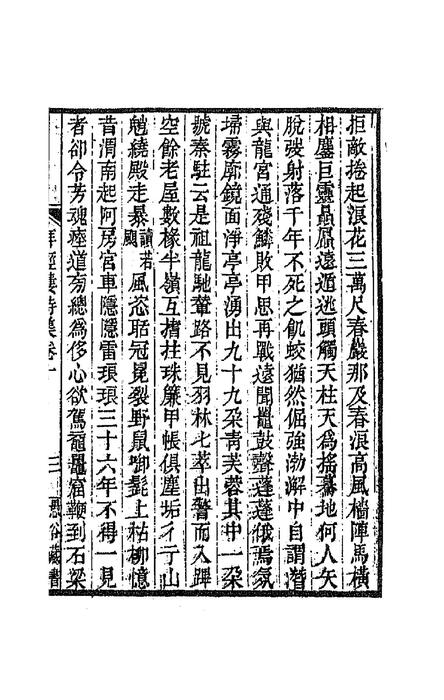 拒敵捲起浪花三萬尺春巖那及春浪高風檣陣馬橫
相鏖巨靈贔屭遠遁逃頭觸天柱天為搖驀地何人矢
脫弢射落千年不死之飢蛟猶然倔強渤澥中自謂潛
與龍宮通殘鱗敗甲思再戰遠聞鼉鼓聲蓬蓬俄焉氛
埽霧廓鏡面淨亭亭湧出九十九朶靑芙蓉其中一朶
號秦駐云是祖龍馳輦路不見羽林七萃出警而入蹕
空餘老屋數椽半嶺互撐拄珠簾甲帳俱塵垢彳亍山
魈繞殿走暴讀若颮風恣䎳冠冕裂野鼠啣髭上枯柳憶
昔渭南起阿房宮車隱隱雷琅琅三十六年不得一見
者卻令芳魂瘞道旁總為侈心欲駕黿鼉窟鞭到石梁
拜經樓詩集卷一 三 愚谷藏書